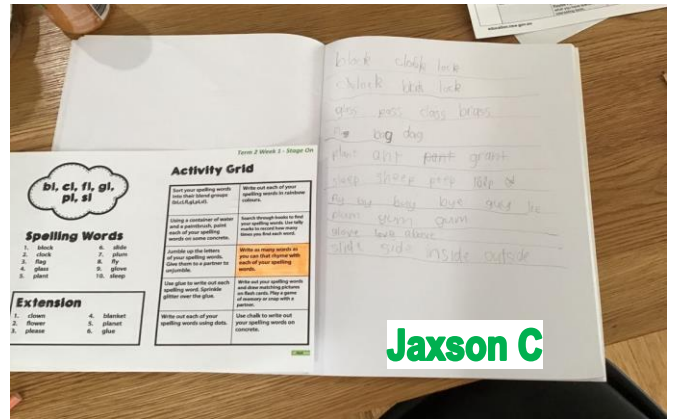 Term 2 Week 3 - Stage On
bl, cl, fl, gl,
pl, sl
Spelling Words
1. block
2. clock
3. flag
4. glass
5. plant
6. slide
7. plum
8. fly
9. glove
10. sleep
Extension
1. clown
2. flower
3. please
4. blanket
5. planet
6. glue
Activity Grid
Sort your spelling words
into their blend groups
(bl,cl,fl,gl,pl,sl).
Write out each of your
spelling words in rainbow
colours.
Using a container of water
and a paintbrush, paint
each of your spelling
words on some concrete.
Search through books to find
your spelling words. Use tally
marks to record how many
times you find each word.
Jumble up the letters
of your spelling words.
Give them to a partner to
unjumble.
Write as many words as
you can that rhyme with
each of your spelling
words.
Use glue to write out each
spelling word. Sprinkle
glitter over the glue.
Write out your spelling words
and draw matching pictures
on flash cards. Play a game
of memory or snap with a
partner.
Write out each of your
spelling words using dots.
Use chalk to write out
your spelling words on
concrete.
block clock lock
lock
glass pass class brass
bag dag
plant ant pant grant
sleep sheep peep
buy bye
plum glum
glove love above
slide side inside outside
Jaxson C